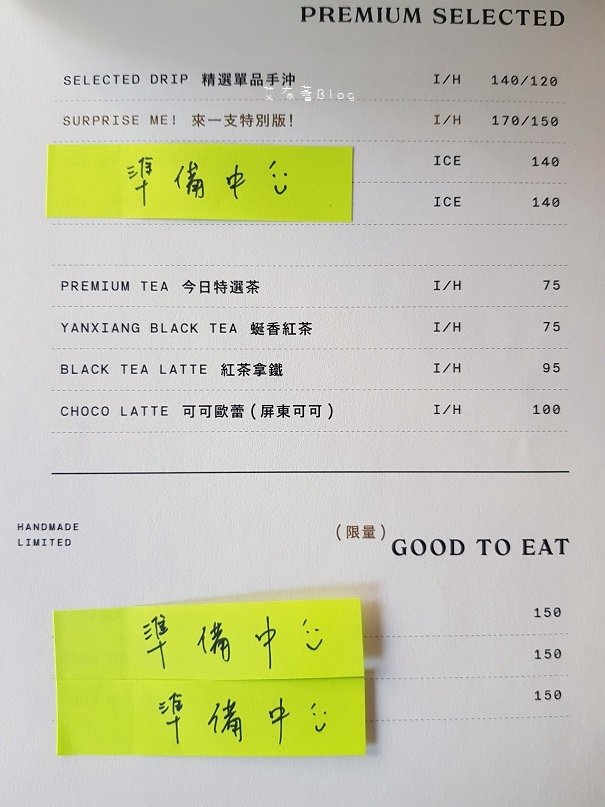 PREMIUM SELECTED
SELECTED DRIP 精選單品手沖 I/H 140/120
艾布蕾Blog
SURPRISE ME! 來一支特別版! I/H 170/150
準備中 ICE 140
ICE 140
PREMIUM TEA 今日特選茶 I/H 75
YANXIANG BLACK TEA 蜒香紅茶 I/H 75
BLACK TEA LATTE 紅茶拿鐵 I/H 95
CHOCO LATTE 可可歐蕾(屏東可可) I/H 100
HANDMADE
LIMITED
(限量) GOOD TO EAT
150
準備中 150
準備中 150